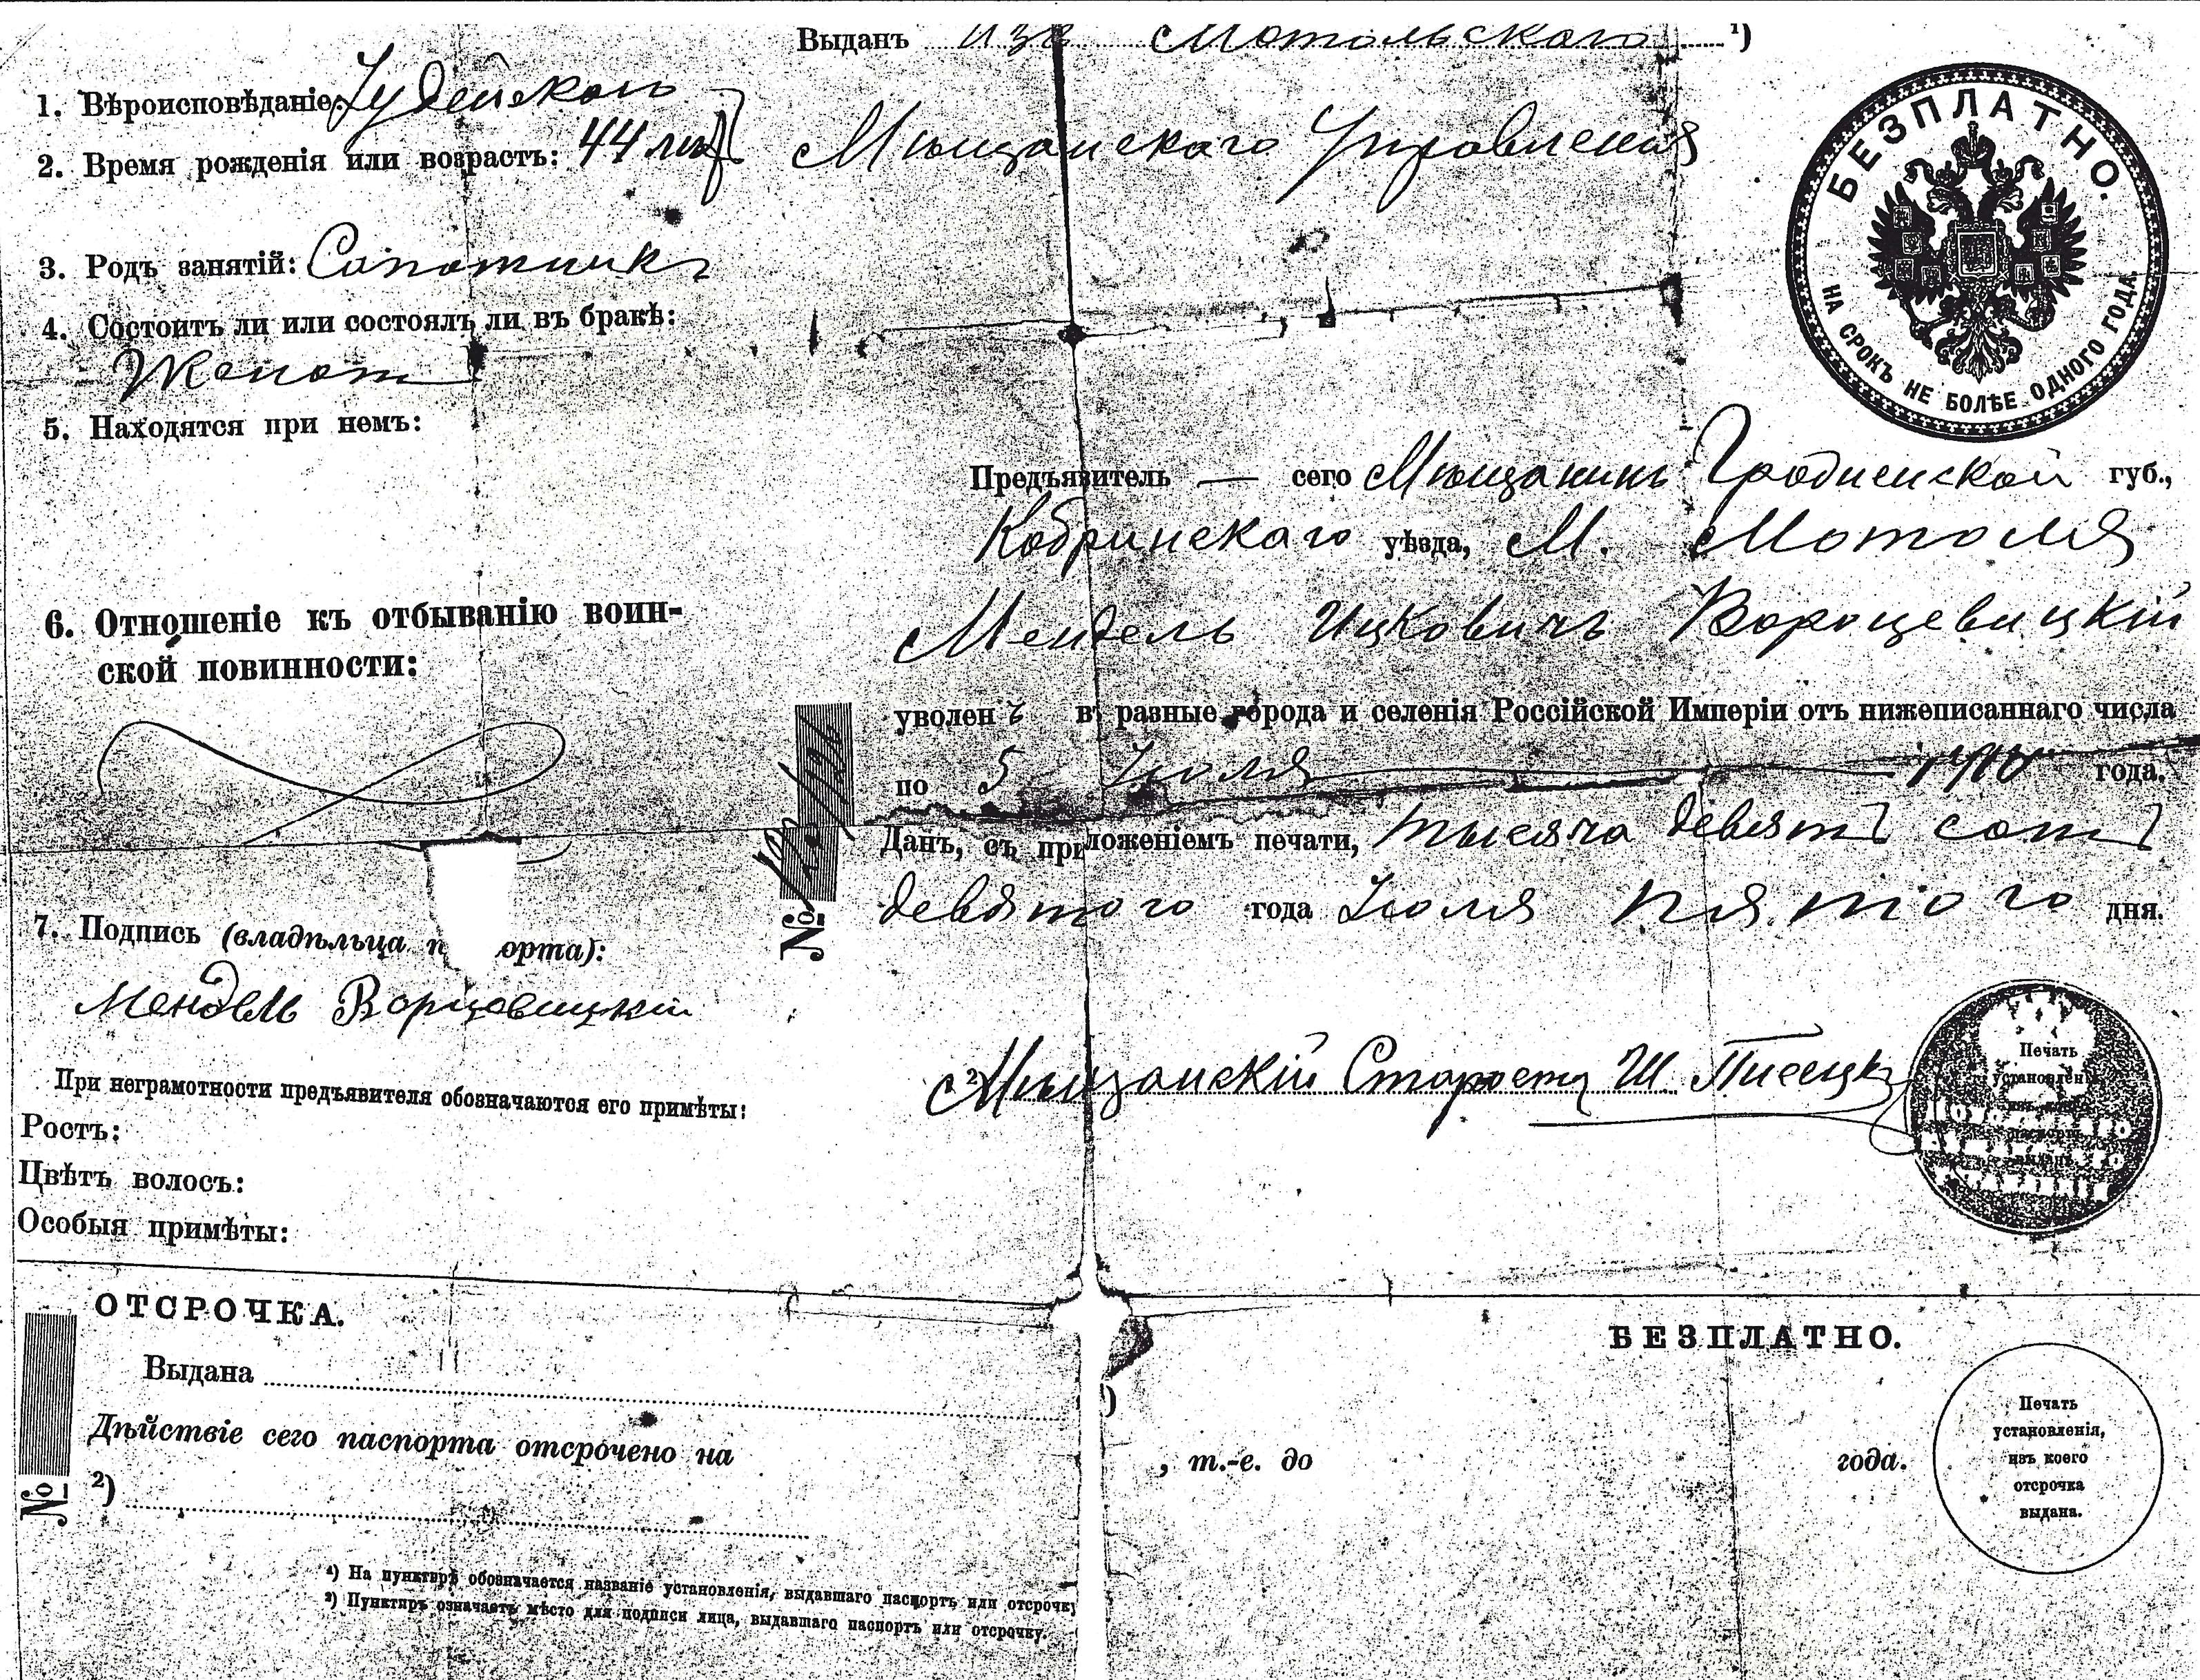 Выданъ изъ Мотольскаго ¹)
Мѣщанскаго Управленія
1. Вѣроисповѣданіе: Іудейскаго
2. Время рожденія или возрастъ: 44 лѣтъ
3. Родъ занятій: Сапожникъ
4. Состоитъ ли или состоялъ ли въ бракѣ:
Женатъ
5. Находятся при немъ:
6. Отношеніе къ отбыванію воин-
ской повинности:
7. Подпись (владѣльца п орта):
Мендель Ворцевицкій
При неграмотности предъявителя обозначаются его примѣты:
Ростъ:
Цвѣтъ волосъ:
Особыя примѣты:
БЕЗПЛАТНО.
НА СРОКЪ НЕ БОЛѢЕ ОДНОГО ГОДА
Предъявитель — сего Мѣщанинъ Гродненской губ.,
Кобринскаго уѣзда, М. Мотоля
Мендель Ицковичъ Вороцевицкій
уволенъ въ разные города и селенія Россійской Имперіи отъ нижеписаннаго числа
по 5 Іюля 1910 года.
Данъ, съ приложеніемъ печати, тысяча девятьсотъ
девятого года Іюля пятого дня.
№
²) Мѣщанскій Староста Ш. Писецкій
Печать
установленія
изъ коего
паспортъ
выданъ.
ОТСРОЧКА.
БЕЗПЛАТНО.
Выдана ¹)
Дѣйствіе сего паспорта отсрочено на , т.-е. до года.
№
²)
Печать
установленія,
изъ коего
отсрочка
выдана.
¹) На пунктирѣ обозначается названіе установленія, выдавшаго паспортъ или отсрочку
²) Пунктиръ означаетъ мѣсто для подписи лица, выдавшаго паспортъ или отсрочку.